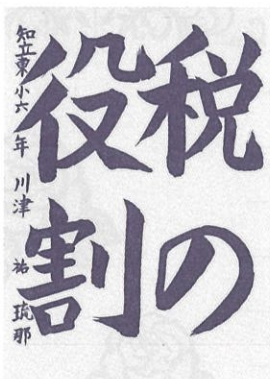 税の
役割
知立東小六年 川津 祐琉那